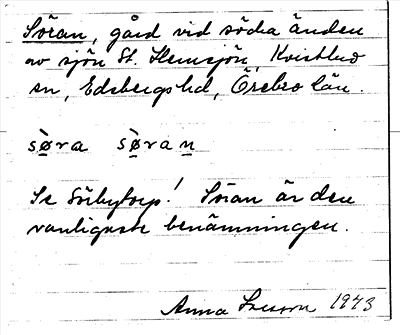 Söran, gård vid södra änden
av sjön St. Hemsjön, Kvistbro
sn, Edsbergs hd, Örebro län.
sø̀ra sø̀ran
Se Sörbytorp! Söran är den
vanligaste benämningen.
Anna 1943